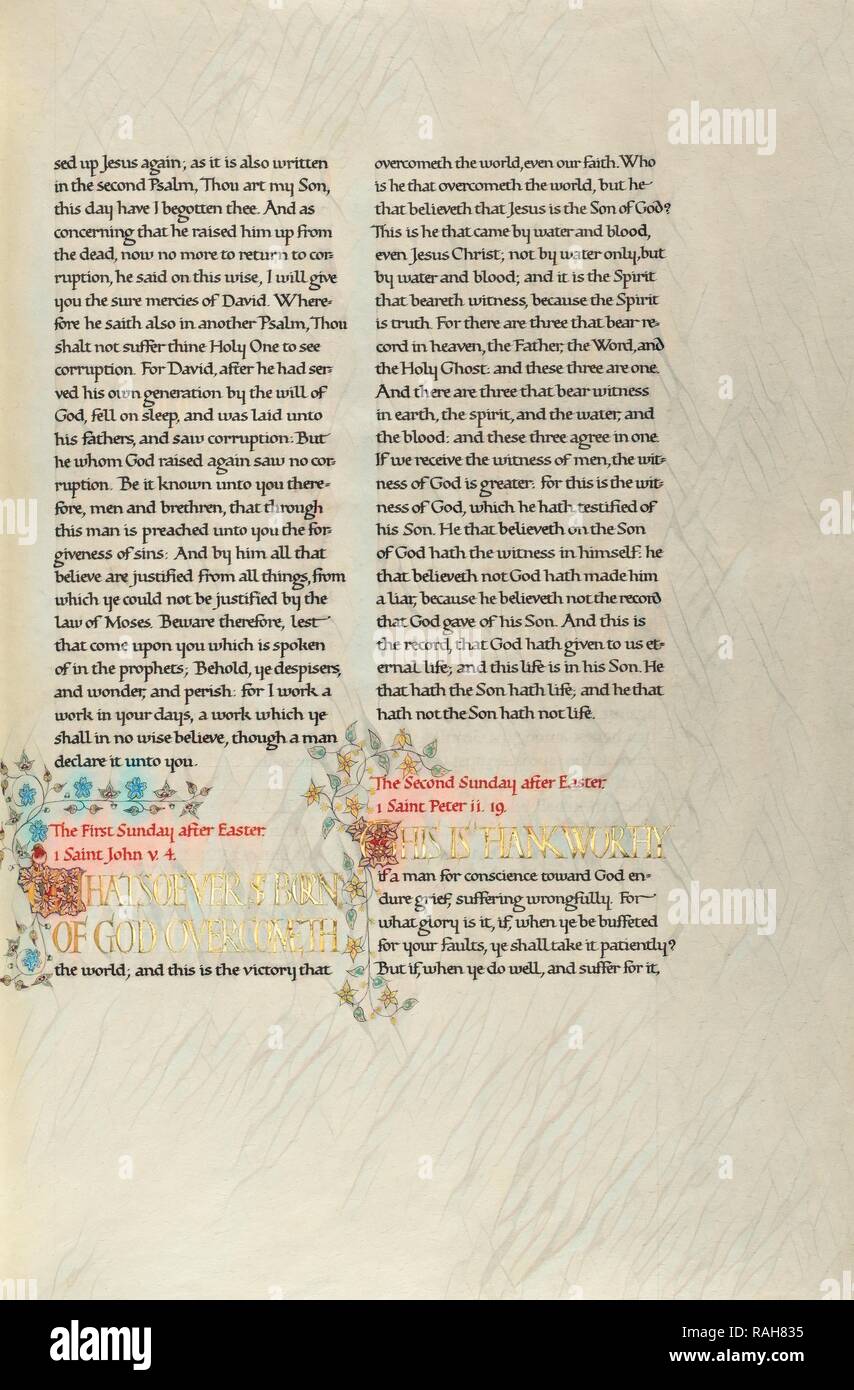 sed up Jesus again; as it is also written
in the second Psalm, Thou art my Son,
this day have I begotten thee. And as
concerning that he raised him up from
the dead, now no more to return to cor=
ruption, he said on this wise, I will give
you the sure mercies of David. Where=
fore he saith also in another Psalm, Thou
shalt not suffer thine Holy One to see
corruption. For David, after he had ser=
ved his own generation by the will of
God, fell on sleep, and was laid unto
his fathers, and saw corruption: But
he whom God raised again saw no cor=
ruption. Be it known unto you there=
fore, men and brethren, that through
this man is preached unto you the for=
giveness of sins: And by him all that
believe are justified from all things, from
which ye could not be justified by the
law of Moses. Beware therefore, lest
that come upon you which is spoken
of in the prophets; Behold, ye despisers,
and wonder, and perish: for I work a
work in your days, a work which ye
shall in no wise believe, though a man
declare it unto you.
The First Sunday after Easter.
1 Saint John v. 4.
WHATSOEVER IS BORN
OF GOD OVERCOMETH
the world; and this is the victory that
overcometh the world, even our faith. Who
is he that overcometh the world, but he
that believeth that Jesus is the Son of God?
This is he that came by water and blood,
even Jesus Christ; not by water only, but
by water and blood; and it is the Spirit
that beareth witness, because the Spirit
is truth. For there are three that bear re=
cord in heaven, the Father, the Word, and
the Holy Ghost: and these three are one.
And there are three that bear witness
in earth, the spirit, and the water, and
the blood: and these three agree in one.
If we receive the witness of men, the wit=
ness of God is greater: for this is the wit=
ness of God, which he hath testified of
his Son. He that believeth on the Son
of God hath the witness in himself: he
that believeth not God hath made him
a liar, because he believeth not the record
that God gave of his Son. And this is
the record, that God hath given to us et=
ernal life; and this life is in his Son. He
that hath the Son hath life; and he that
hath not the Son hath not life.
The Second Sunday after Easter.
1 Saint Peter ii. 19.
THIS IS THANKWORTHY
if a man for conscience toward God en=
dure grief, suffering wrongfully. For
what glory is it, if, when ye be buffeted
for your faults, ye shall take it patiently?
But if, when ye do well, and suffer for it,
alamy
alamy
alamy
alamy
Image ID: RAH835
www.alamy.com